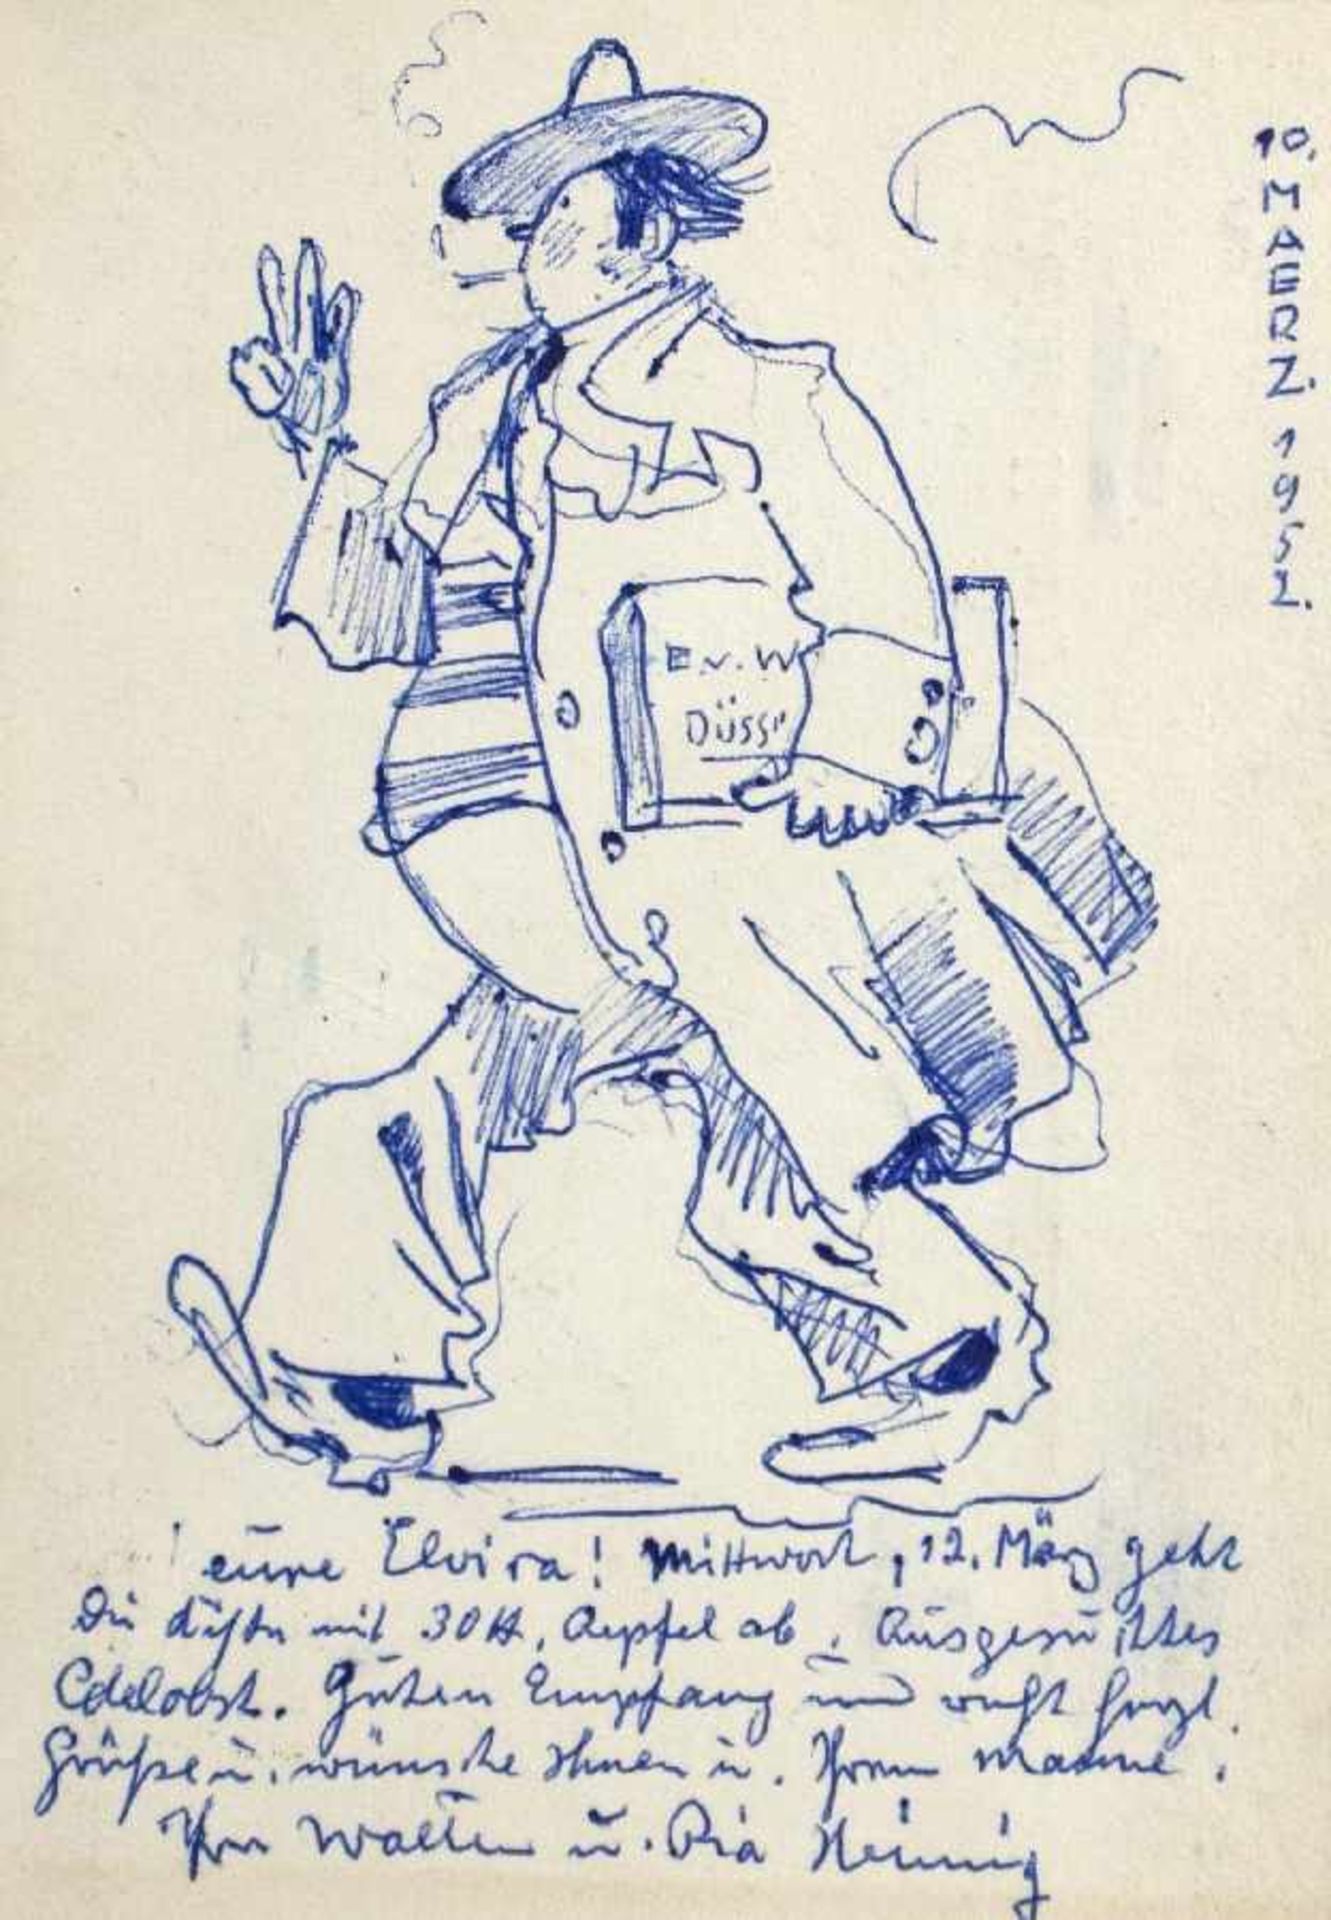 10. MAERZ. 1952.
E.v.W
Düss"
eure Elvira! Mittwoch, 12. März geht
die Kiste mit 30 H, Aepfel ab. Ausgesuchtes
Edelobst. Guten Empfang und recht herzl.
Grüße u. wünsche Ihnen u. Ihrem Manne.
Ihr Walter u. Ria Hennig